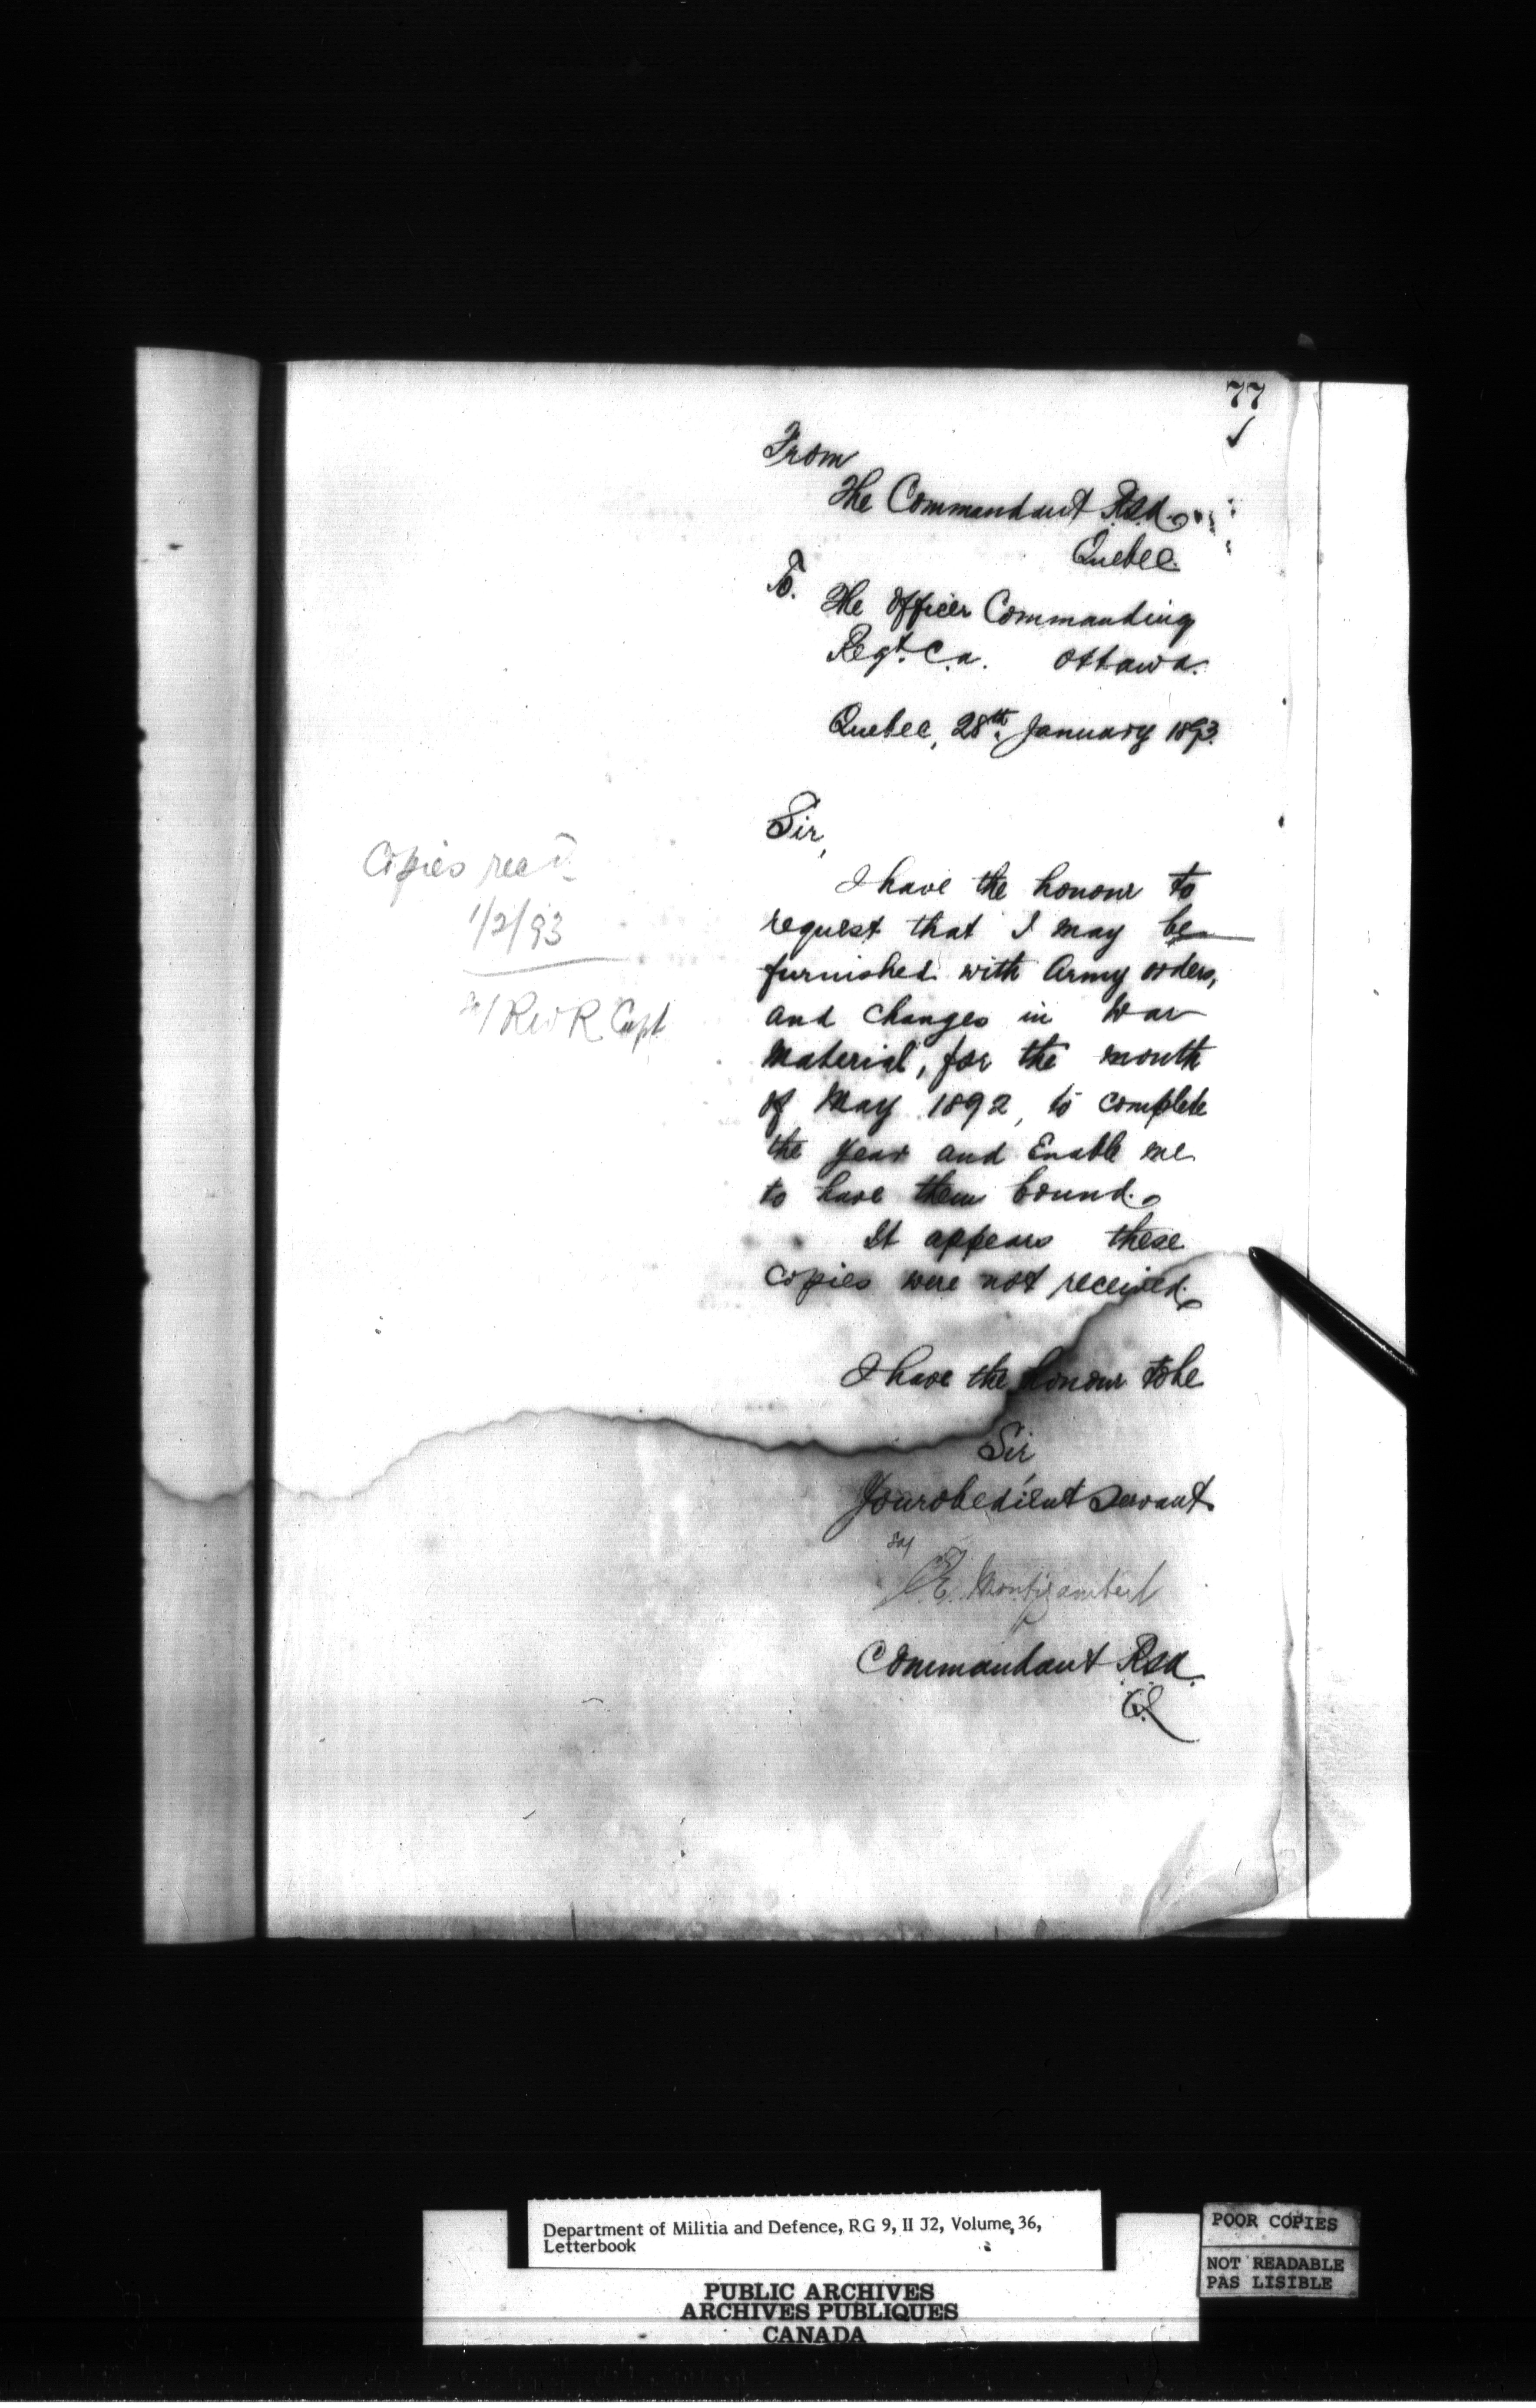 77
From
The Commandant R.S.A.
Quebec.
To.
The Officer Commanding
Regt. C.A. Ottawa.
Quebec, 28th January 1893.
Sir,
I have the honour to
request that I may be
furnished with Army orders,
and changes in War
Material, for the month
of May 1892, to complete
the year and Enable me
to have them bound.
It appears these
copies were not received.
I have the honour to be
Sir
Your obedient Servant.
Sd/
C.E. Montizambert
Commandant R.S.A.
Copies recd.
1/2/93
Sd/ RWR Capt
Department of Militia and Defence, RG 9, II J2, Volume 36,
Letterbook
PUBLIC ARCHIVES
ARCHIVES PUBLIQUES
CANADA
POOR COPIES
NOT READABLE
PAS LISIBLE